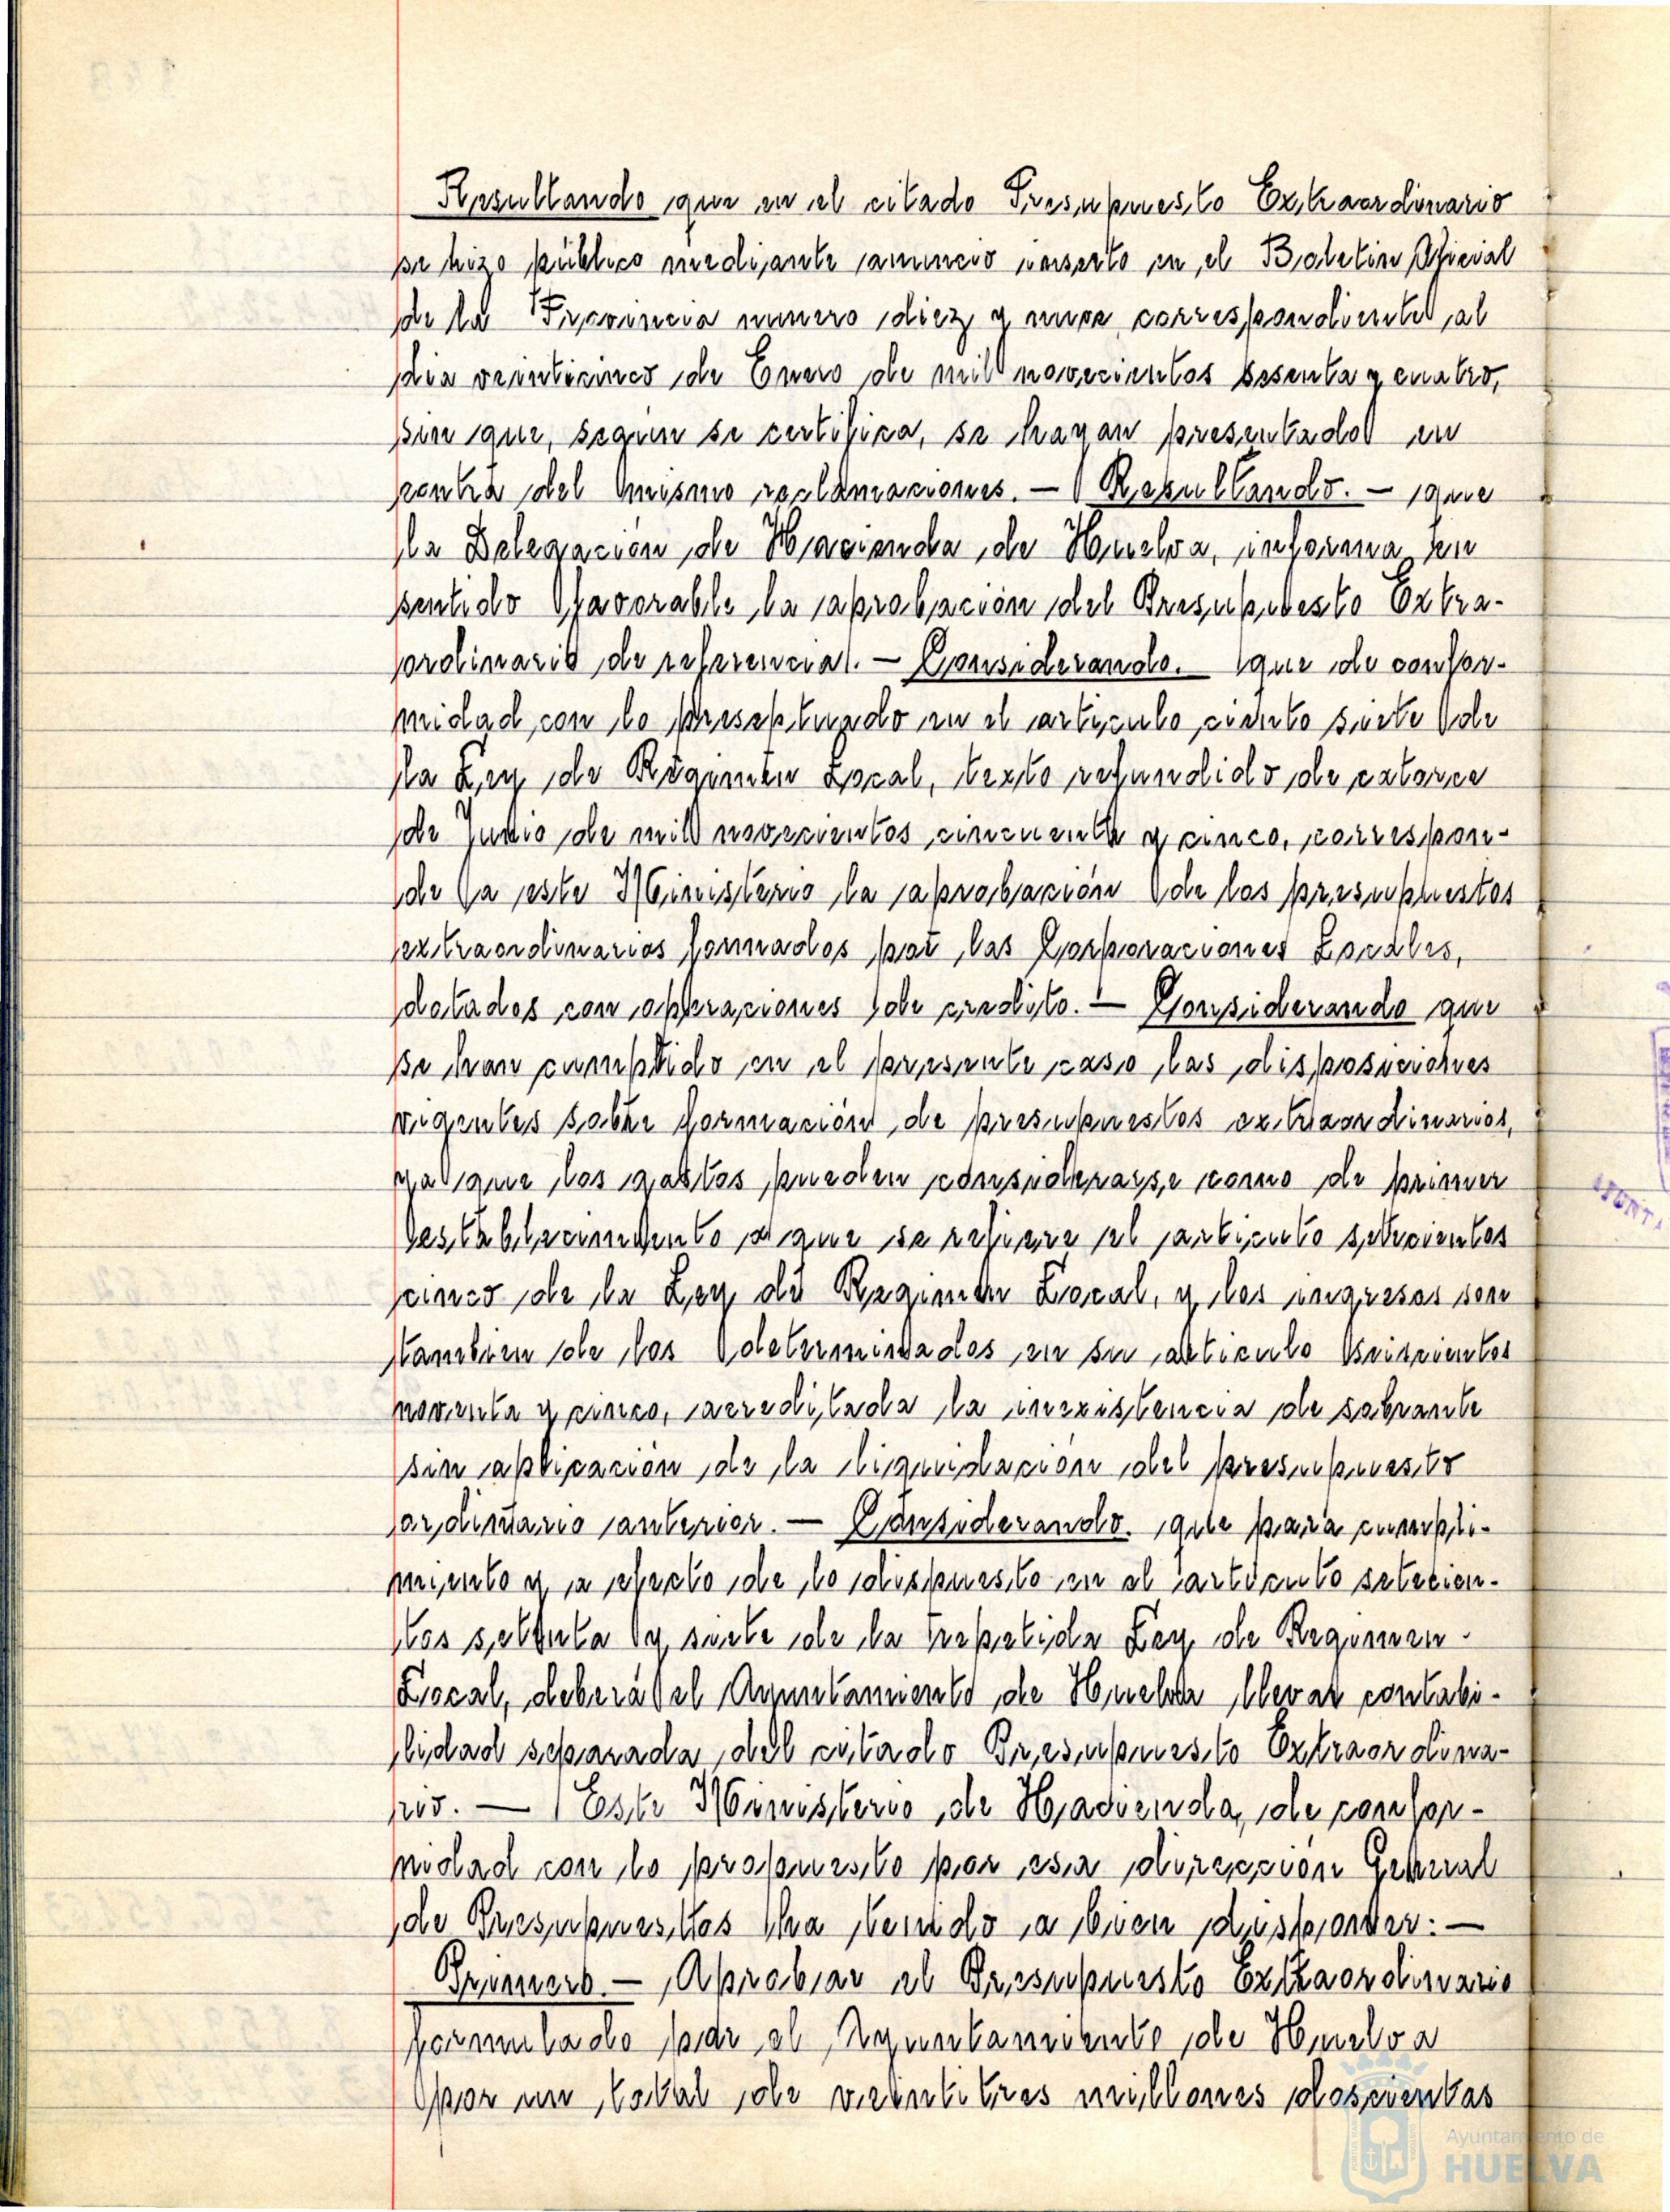 Resultando que en el citado Presupuesto Extraordinario
se hizo público mediante anuncio inserto en el Boletin Oficial
de la Provincia numero diez y nueve correspondiente al
dia veinticinco de Enero de mil novecientos sesenta y cuatro,
sin que, segun se certifica, se hayan presentado en
contra del mismo reclamaciones. — Resultando. — que
la Delegación de Hacienda de Huelva, informa en
sentido favorable la aprobación del Presupuesto Extra-
ordinario de referencia. — Considerando. que de confor-
midad con lo preseptuado en el articulo ciento siete de
la Ley de Régimen Local, texto refundido de catorce
de Junio de mil novecientos cincuenta y cinco, correspon-
de a este Ministerio la aprobación de los presupuestos
extraordinarios formados por las Corporaciones Locales,
dotados con operaciones de credito. — Considerando que
se han cumplido en el presente caso las disposiciones
vigentes sobre formación de presupuestos extraordinarios,
ya que los gastos pueden considerarse como de primer
establecimiento a que se refiere el articulo setecientos
cinco de la Ley de Regimen Local, y los ingresos son
tambien de los determinados en su articulo seiscientos
noventa y cinco, acreditada la inexistencia de sobrante
sin aplicación de la liquidación del presupuesto
ordinario anterior. — Considerando. que para cumpli-
miento y a efecto de lo dispuesto en el articulo setecien-
tos setenta y siete de la repetida Ley de Regimen
Local, deberá el Ayuntamiento de Huelva llevar contabi-
lidad separada del citado Presupuesto Extraordina-
rio. — Este Ministerio de Hacienda, de confor-
midad con lo propuesto por esa dirección General
de Presupuestos ha tenido a bien disponer: —
Primero. — Aprobar el Presupuesto Extraordinario
formulado por el Ayuntamiento de Huelva
por un total de veintitres millones doscientas
Ayuntamiento de
HUELVA